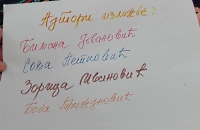 Аутори изложбе:
Биљана Јовановић
Сања Петровић
Зорица Ивановић
Боба